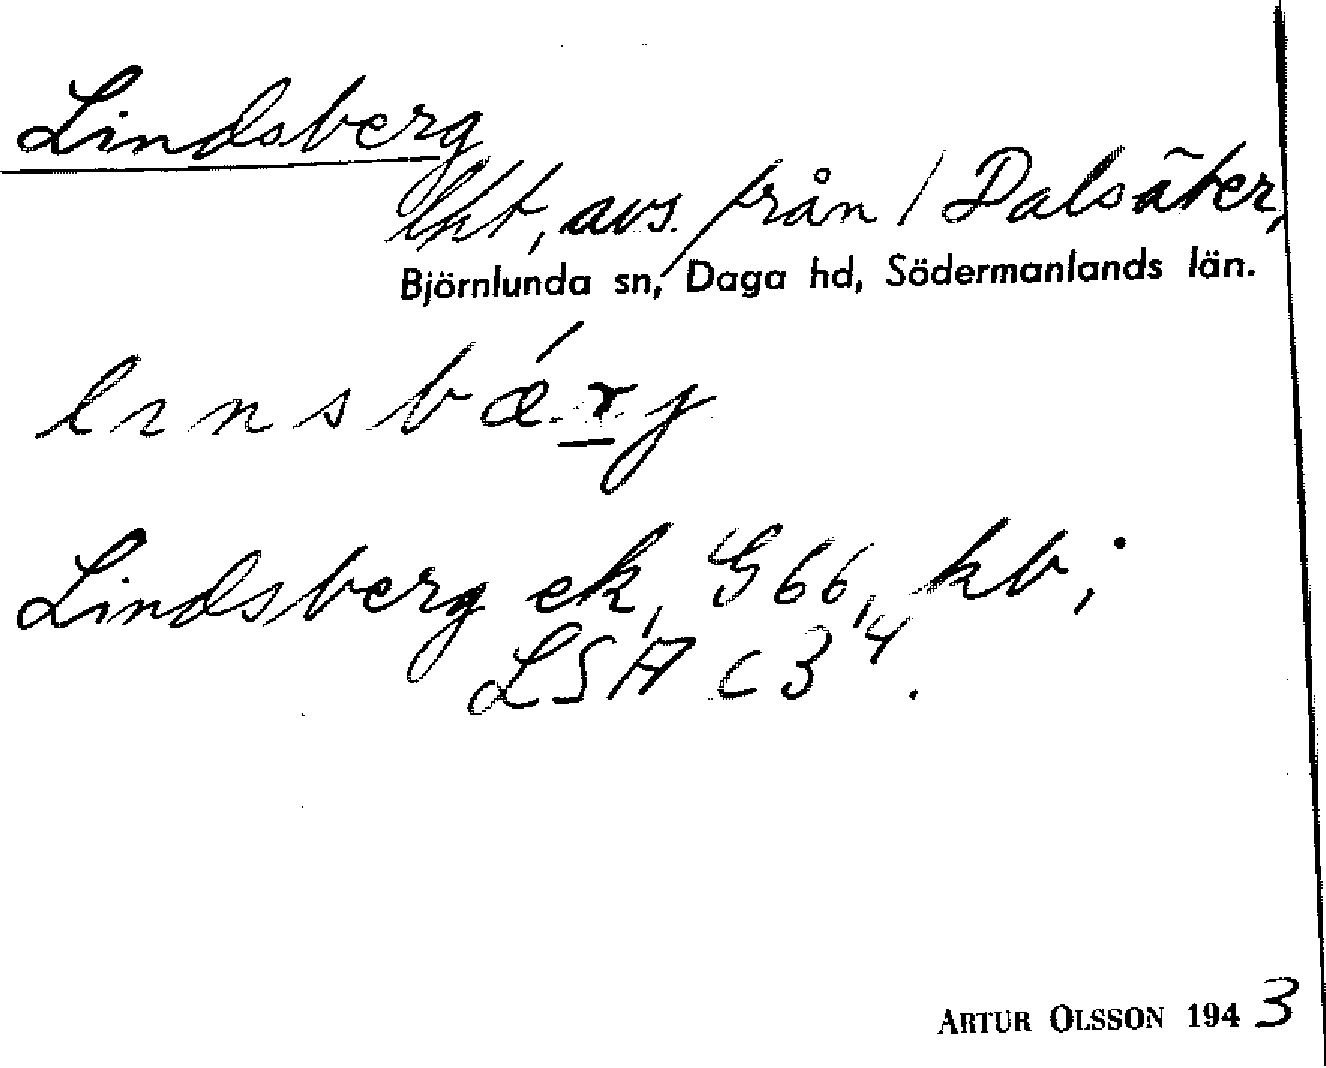 Lindsberg
lht, avs. från 1 Dalsäter,
Björnlunda sn, Daga hd, Södermanlands län.
lınsbǽ.r.g
Lindsberg ek, G66, kb;
LSA C3⁴.
ARTUR OLSSON 1943